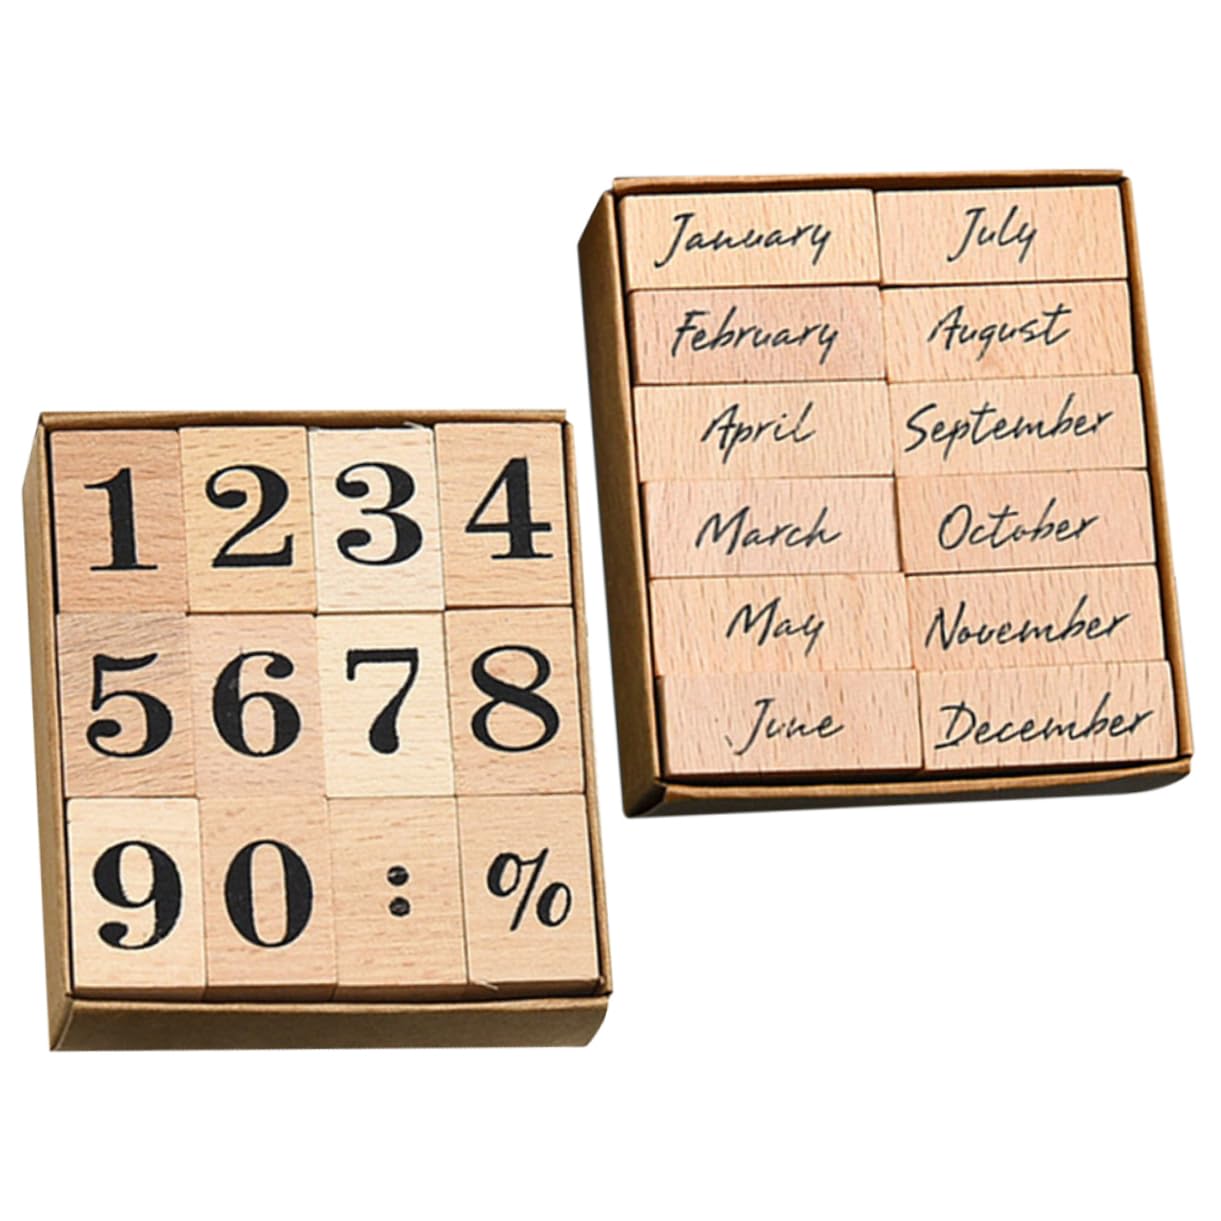 1 2 3 4
5 6 7 8
9 0 : %
January July
February August
April September
March October
May November
June December